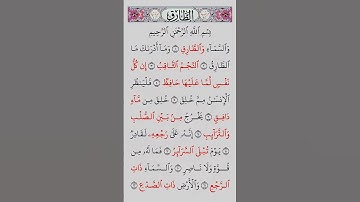 الطَّارِق
بِسْمِ ٱللَّهِ ٱلرَّحْمَٰنِ ٱلرَّحِيمِ
وَٱلسَّمَآءِ وَٱلطَّارِقِ ۝١ وَمَآ أَدْرَىٰكَ مَا
ٱلطَّارِقُ ۝٢ ٱلنَّجْمُ ٱلثَّاقِبُ ۝٣ إِن كُلُّ
نَفْسٍ لَّمَّا عَلَيْهَا حَافِظٌ ۝٤ فَلْيَنظُرِ
ٱلْإِنسَٰنُ مِمَّ خُلِقَ ۝٥ خُلِقَ مِن مَّآءٍ
دَافِقٍ ۝٦ يَخْرُجُ مِنۢ بَيْنِ ٱلصُّلْبِ
وَٱلتَّرَآئِبِ ۝٧ إِنَّهُۥ عَلَىٰ رَجْعِهِۦ لَقَادِرٌ
۝٨ يَوْمَ تُبْلَى ٱلسَّرَآئِرُ ۝٩ فَمَا لَهُۥ مِن
قُوَّةٍ وَلَا نَاصِرٍ ۝١٠ وَٱلسَّمَآءِ ذَاتِ
ٱلرَّجْعِ ۝١١ وَٱلْأَرْضِ ذَاتِ ٱلصَّدْعِ ۝١٢